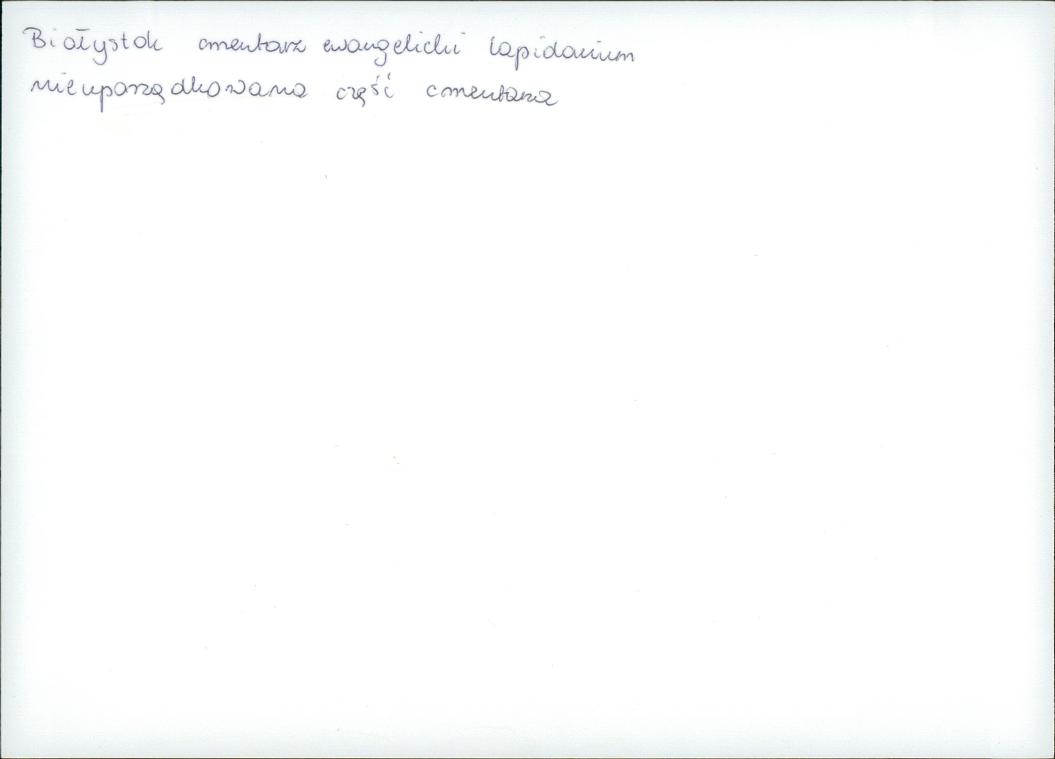 Białystok cmentarz ewangelicki lapidarium
nieuporządkowana część cmentarza